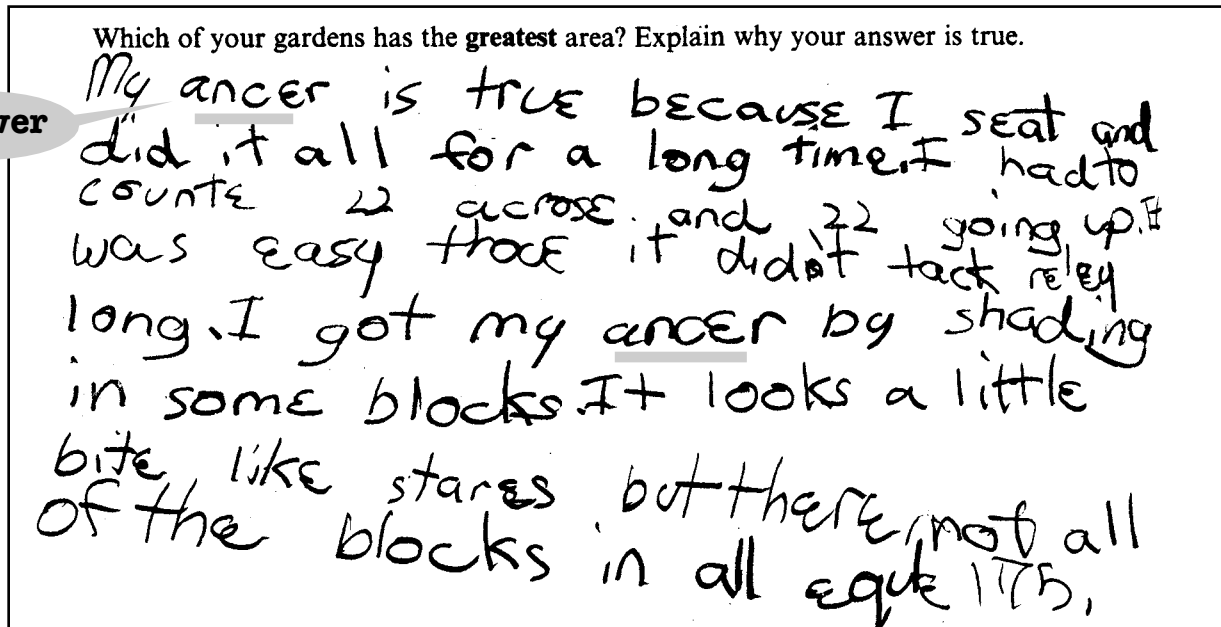 Which of your gardens has the greatest area? Explain why your answer is true.
My ancer is true because I seat and
ver
did it all for a long time. I had to
counte 22 acrose. and 22 going up. It
was easy thoce it didot tack reley
long. I got my ancer by shading
in some blocks. It looks a little
bite like stares but there not all
of the blocks in all eque 175.